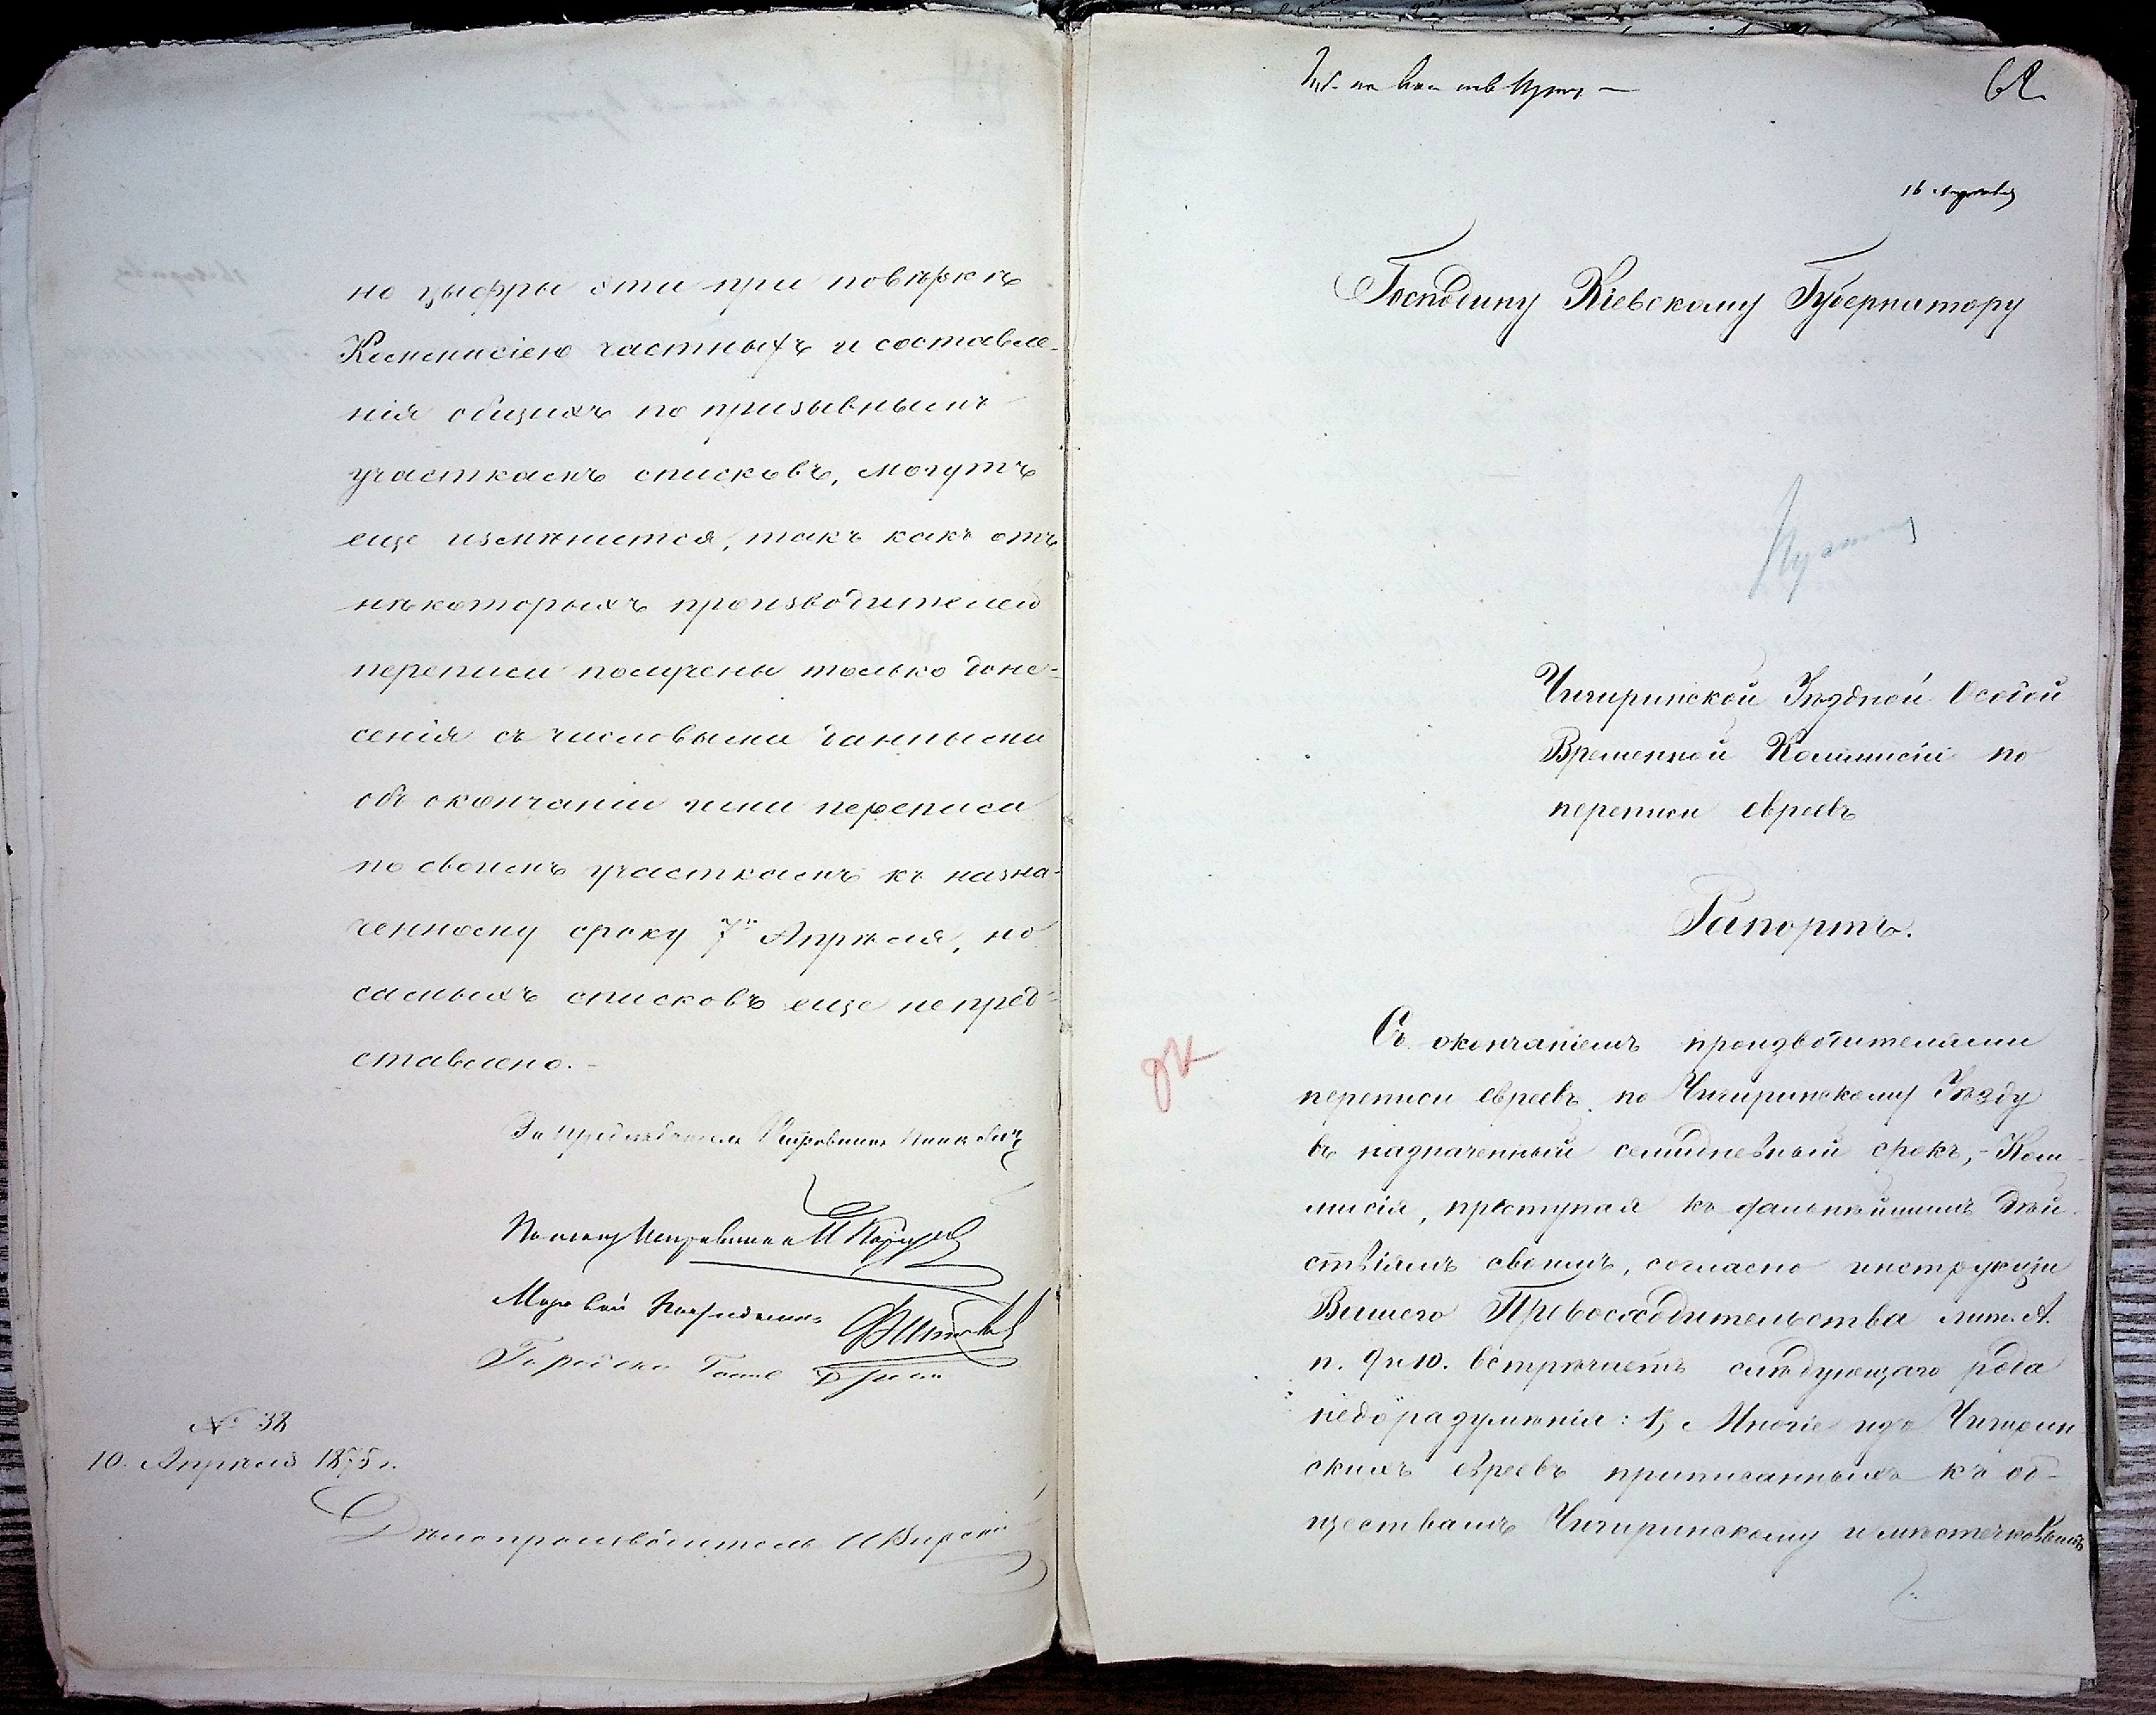 но цыфры эти при повѣркѣ
Коммисіею частныхъ и составле-
нія общихъ по призывнымъ
участкамъ списковъ, могутъ
еще измѣнится, такъ какъ отъ
нѣкоторыхъ производителей
переписи получены только доне-
сенія съ числовыми данными
объ окончаніи ими переписи
по своимъ участкамъ къ назна-
ченному сроку 7го Апрѣля, но
самыхъ списковъ еще не пред-
ставлено.-
За Предсѣдателя
Мировой Посредникъ
№ 38
10. Апрѣля 1875 г.
Дѣлопроизводитель
62.
16 Апрѣля
Господину Кіевскому Губернатору
Чигиринской Уѣздной Особой
Временной Коммисіи по
переписи евреевъ
Рапортъ.
Съ окончаніемъ производителями
переписи евреевъ по Чигиринскому Уѣзду
въ назначенный семидневный срокъ, - Ком-
мисія, приступая къ дальнѣйшимъ дѣй-
ствіямъ своимъ, согласно инструкціи
Вашего Превосходительства лит. А.
п. 9 и 10. встрѣчаетъ слѣдующаго рода
недоразумѣнія: 1, Многіе изъ Чигирин
скихъ евреевъ приписанныхъ къ об-
ществамъ Чигиринскому и мѣстечковымъ